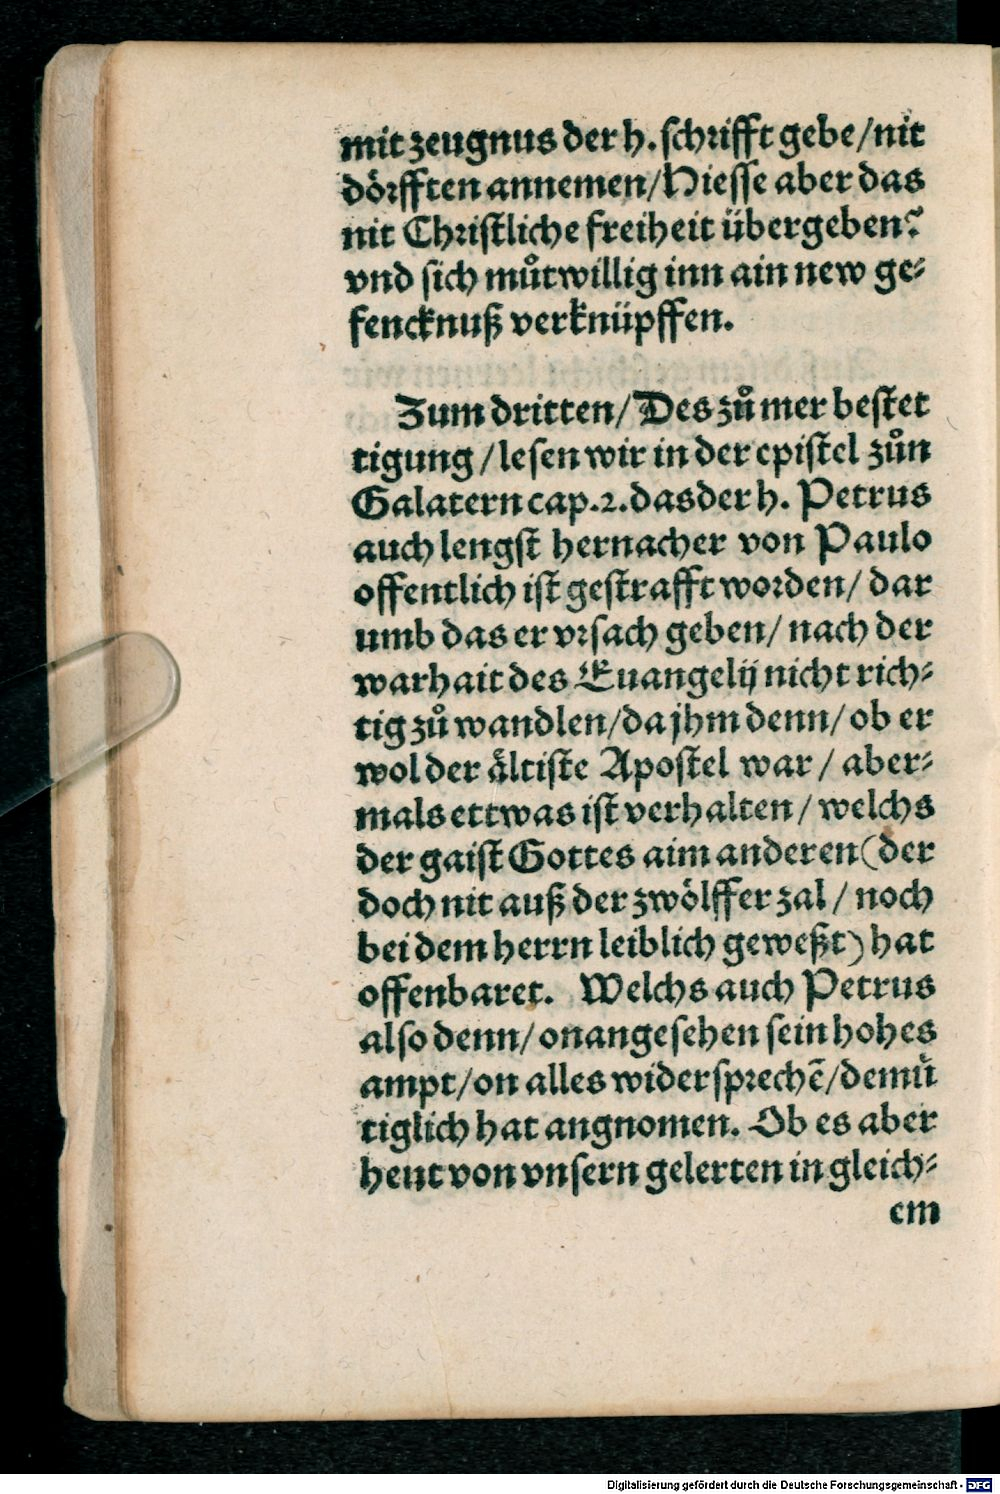 mit zeugnus der h. schrifft gebe/nit
dörfften annemen/Hiesse aber das
nit Christliche freiheit übergeben?
vnd sich můtwillig inn ain new ge⸗
fencknuß verknüpffen.
Zum dritten/Des zů mer bestet
tigung/lesen wir in der epistel zůn
Galatern cap.2.das der h. Petrus
auch lengst hernacher von Paulo
offentlich ist gestrafft worden/dar
umb das er vrsach geben/nach der
warhait des Euangelij nicht rich⸗
tig zů wandlen/da jhm denn/ob er
wol der ältiste Apostel war/aber⸗
mals ettwas ist verhalten/welchs
der gaist Gottes aim anderen(der
doch nit auß der zwölffer zal/noch
bei dem herrn leiblich geweßt)hat
offenbaret. Welchs auch Petrus
also denn/onangesehen sein hohes
ampt/on alles widersprechē/demü
tiglich hat angnomen. Ob es aber
heut von vnsern gelerten in gleich⸗
em
Digitalisierung gefördert durch die Deutsche Forschungsgemeinschaft - DFG